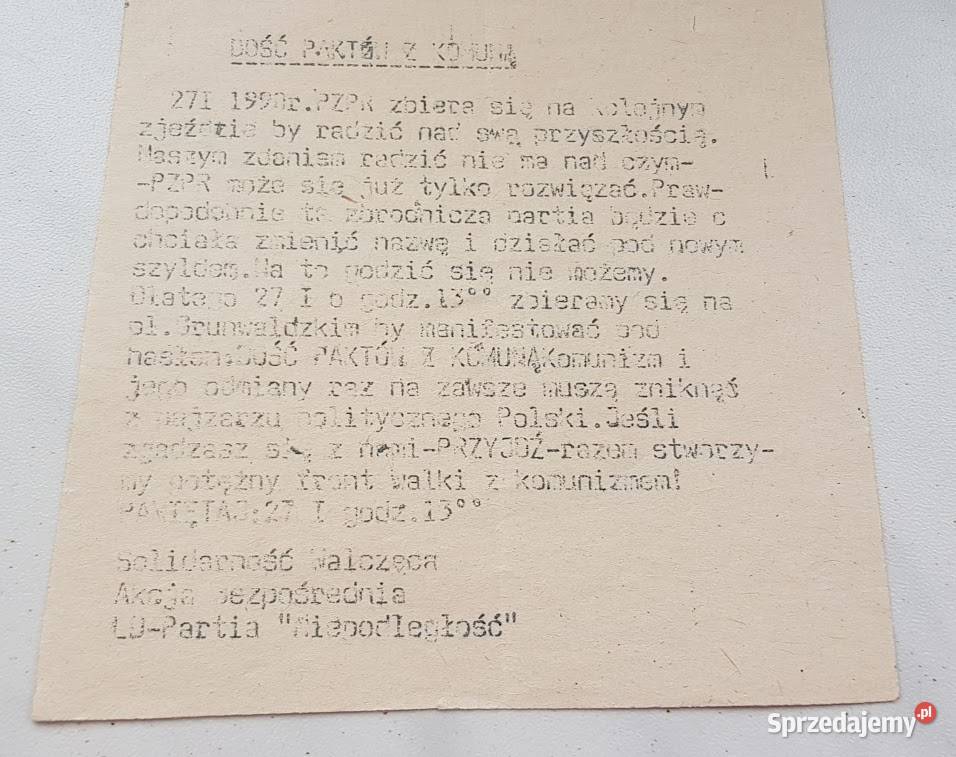 DOŚĆ PAKTÓW Z KOMUNĄ
27I 1990r.PZPR zbiera się na kolejnym
zjeździe by radzić nad swą przyszłością.
Naszym zdaniem radzić nie ma nad czym-
-PZPR może się już tylko rozwiązać.Praw-
dopodobnie ta zbrodnicza partia będzie c
chciała zmienić nazwę i działać pod nowym
szyldem.Na to godzić się nie możemy.
Dlatego 27 I o godz.13⁰⁰ zbieramy się na
pl.Grunwaldzkim by manifestować pod
hasłem:DOŚĆ PAKTÓW Z KOMUNĄKomunizm i
jego odmiany raz na zawsze muszą zniknąś
z pejzarzu politycznego Polski.Jeśli
zgadzasz się z nami-PRZYJDŹ-razem stworzy-
my potężny front walki z komunizmem!
PAMIĘTAJ:27 I godz.13⁰⁰
Solidarność Walcząca
Akcja Bezpośrednia
LD-Partia "Niepodległość"
Sprzedajemy.pl